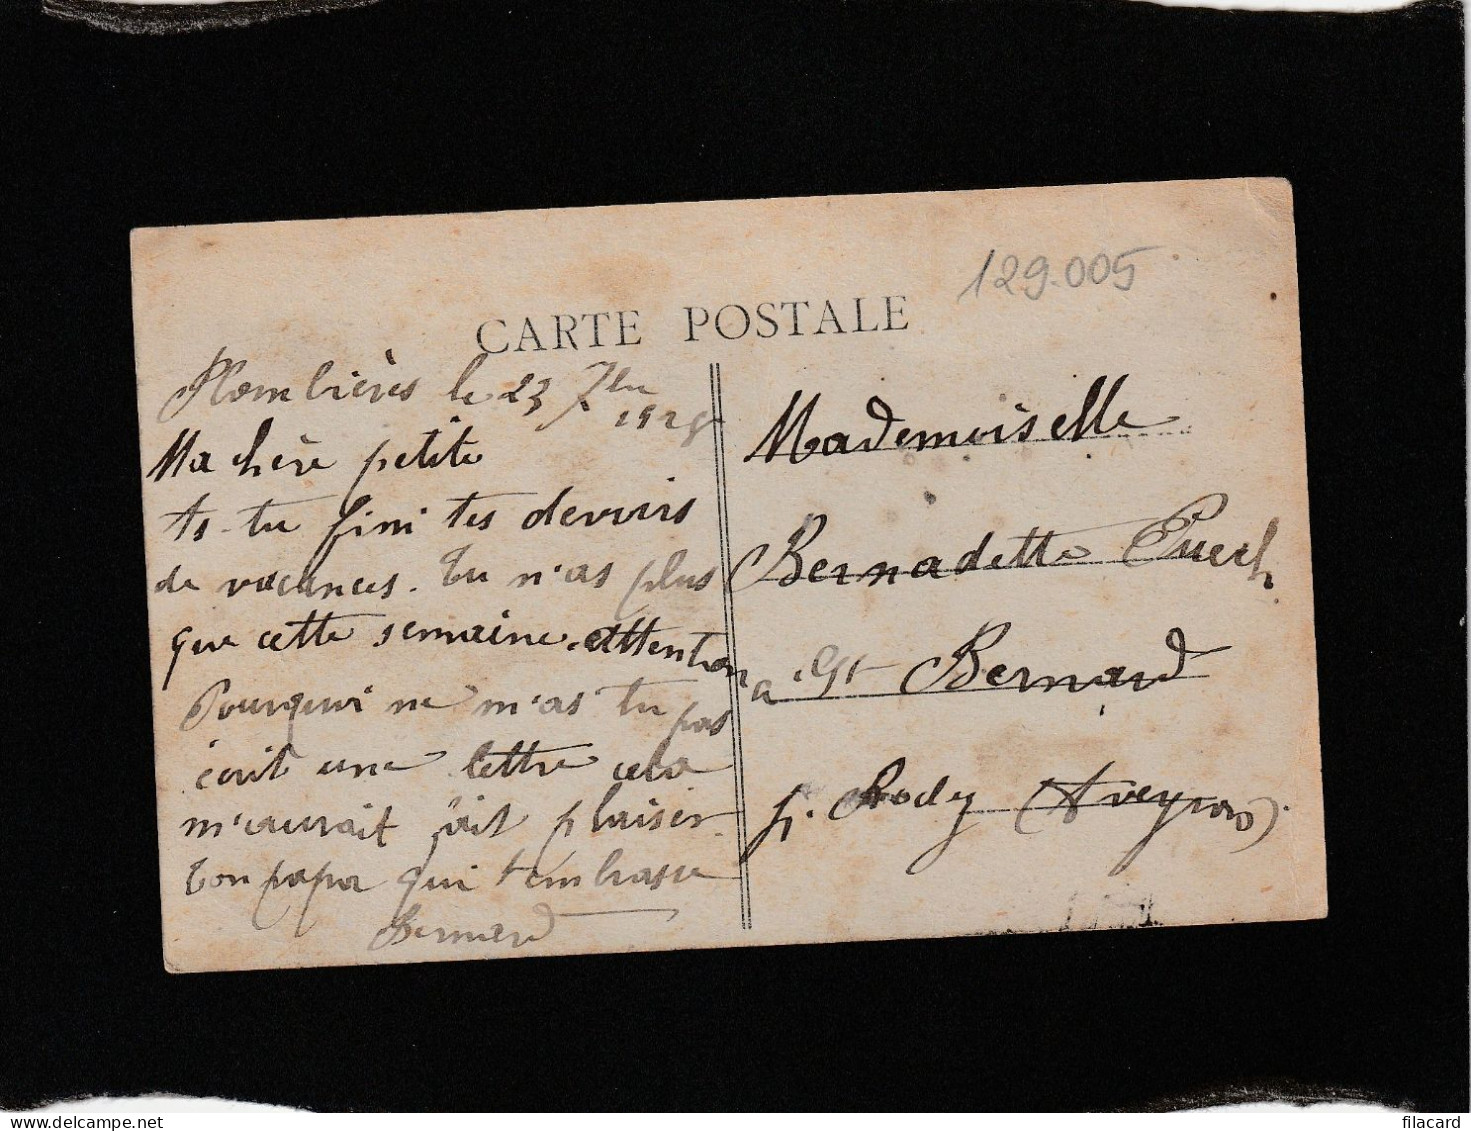 129.005
CARTE POSTALE
Plombières le 23 7bre
Ma chère petite
As-tu fini tes devoirs
de vacances. Tu n'as plus
que cette semaine. attention
Pourquoi ne m'as tu pas
écrit une lettre cela
m'aurait fait plaisir
Ton papa qui t'embrasse
Bernard
Mademoiselle
Bernadette Puech
a St Bernard
p. Rodez (Aveyron).
filacard